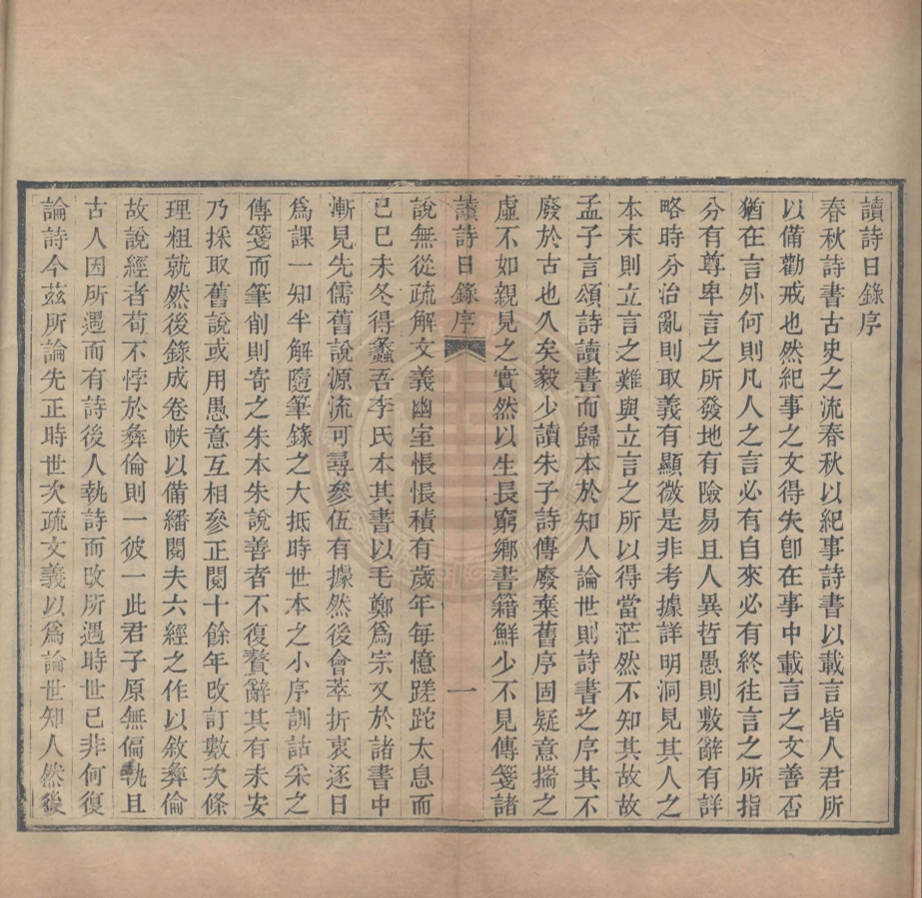 讀詩日錄序
春秋詩書古史之流春秋以紀事詩書以載言皆人君所
以備勸戒也然紀事之文得失卽在事中載言之文善否
猶在言外何則凡人之言必有自來必有終往言之所指
分有尊卑言之所發地有險易且人異哲愚則敷辭有詳
略時分治亂則取義有顯微是非考據詳明洞見其人之
本末則立言之難與立言之所以得當茫然不知其故故
孟子言頌詩讀書而歸本於知人論世則詩書之序其不
廢於古也久矣毅少讀朱子詩傳廢棄舊序固疑意揣之
虛不如親見之實然以生長窮鄉書籍鮮少不見傳箋諸
讀詩日錄序
一
說無從疏解文義幽室悵悵積有歲年每憶蹉跎太息而
已巳未冬得蠡吾李氏本其書以毛鄭爲宗又於諸書中
漸見先儒舊說源流可尋參伍有據然後會萃折衷逐日
爲課一知半解隨筆錄之大抵時世本之小序訓詁采之
傳箋而筆削則寄之朱本朱說善者不復贅辭其有未安
乃採取舊說或用愚意互相參正閱十餘年改訂數次條
理粗就然後錄成卷帙以備繙閱夫六經之作以敘彝倫
故說經者苟不悖於彝倫則一彼一此君子原無偏執且
古人因所遇而有詩後人執詩而改所遇時世已非何復
論詩今茲所論先正時世次疏文義以爲論世知人然後